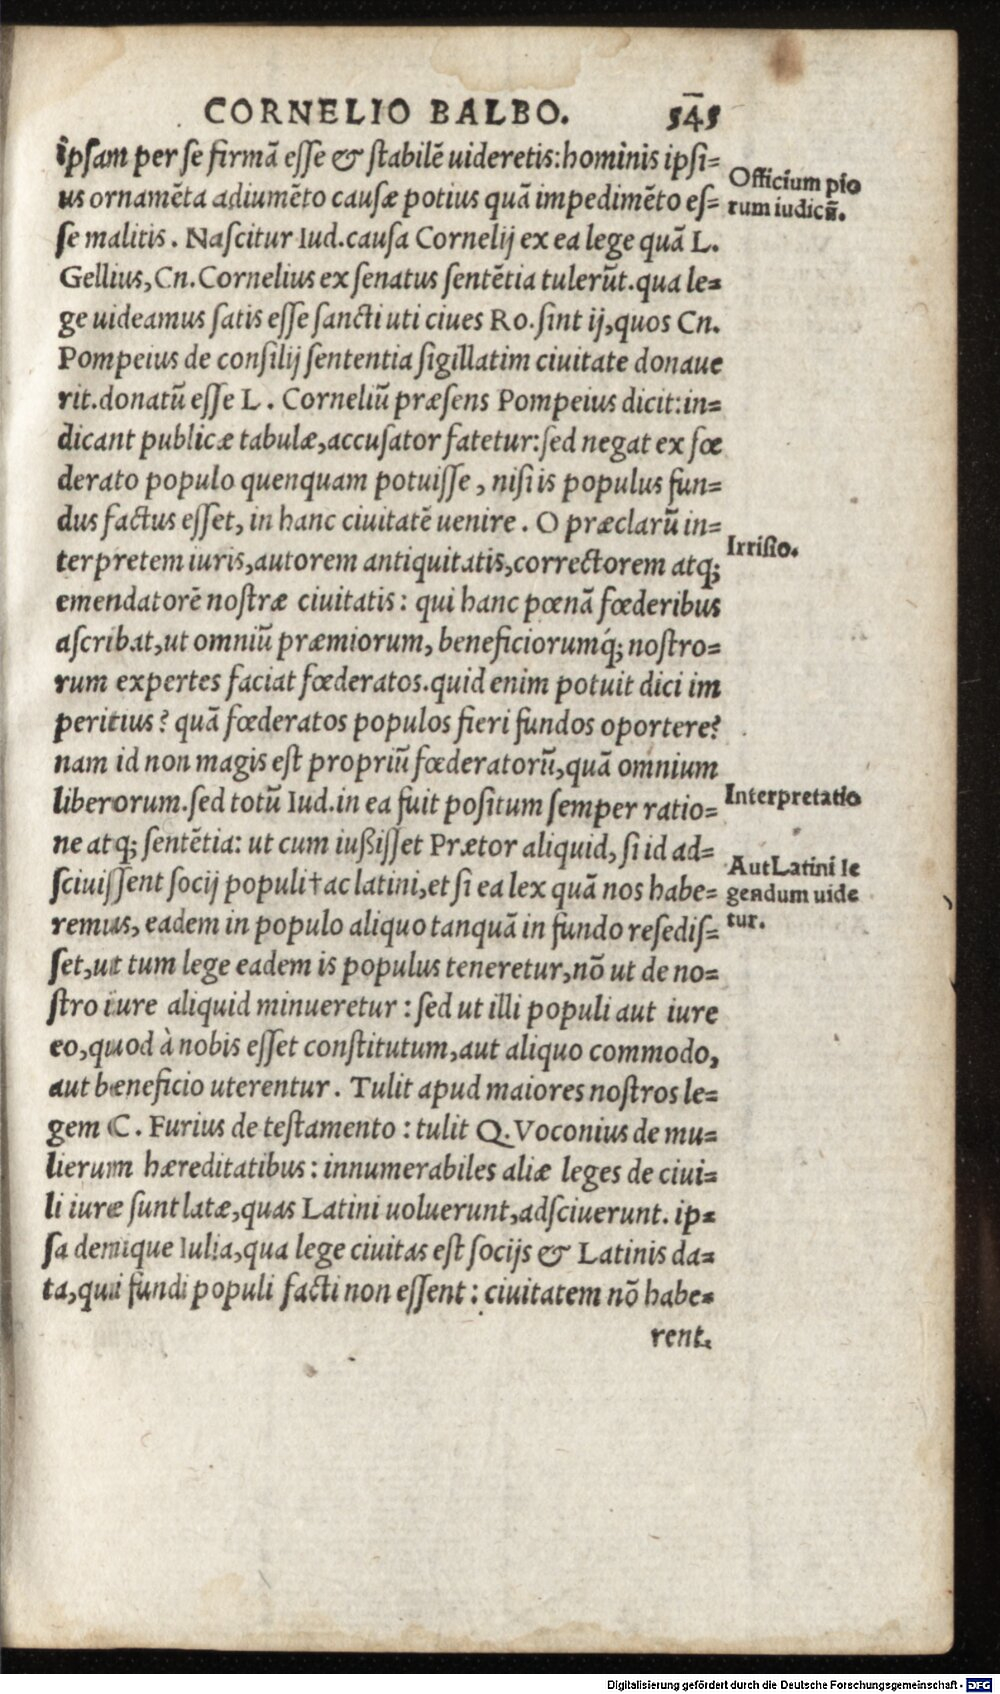 CORNELIO BALBO. 545
ipsam per se firmā esse & stabilē uideretis: hominis ipsi=
us ornamēta adiumēto causæ potius quā impedimēto es=
se malitis. Nascitur Iud. causa Cornelij ex ea lege quā L.
Gellius, Cn. Cornelius ex senatus sentētia tulerūt. qua le=
ge uideamus satis esse sancti uti ciues Ro. sint ij, quos Cn.
Pompeius de consilij sententia sigillatim ciuitate donaue
rit. donatū esse L. Corneliū præsens Pompeius dicit: in=
dicant publicæ tabulæ, accusator fatetur: sed negat ex fœ
derato populo quenquam potuisse, nisi is populus fun=
dus factus esset, in hanc ciuitatē uenire. O præclarū in=
terpretem iuris, autorem antiquitatis, correctorem atq;
emendatorē nostræ ciuitatis: qui hanc pœnā fœderibus
ascribat, ut omniū præmiorum, beneficiorumq́; nostro=
rum expertes faciat fœderatos. quid enim potuit dici im
peritius? quā fœderatos populos fieri fundos oportere?
nam id non magis est propriū fœderatorū, quā omnium
liberorum. sed totū Iud. in ea fuit positum semper ratio=
ne atq; sentētia: ut cum iußisset Prætor aliquid, si id ad=
sciuissent socij populi † ac latini, et si ea lex quā nos habe=
remus, eadem in populo aliquo tanquā in fundo resedis=
set, ut tum lege eadem is populus teneretur, nō ut de no=
stro iure aliquid minueretur: sed ut illi populi aut iure
eo, quod à nobis esset constitutum, aut aliquo commodo,
aut beneficio uterentur. Tulit apud maiores nostros le=
gem C. Furius de testamento: tulit Q. Voconius de mu=
lierum hæreditatibus: innumerabiles aliæ leges de ciui=
li iure sunt latæ, quas Latini uoluerunt, adsciuerunt. ip=
sa denique Iulia, qua lege ciuitas est socijs & Latinis da=
ta, qui fundi populi facti non essent: ciuitatem nō habe=
rent.
Officium pio
rum iudicū.
Irrisio.
Interpretatio
Aut Latini le
gendum uide
tur.
Digitalisierung gefördert durch die Deutsche Forschungsgemeinschaft - DFG